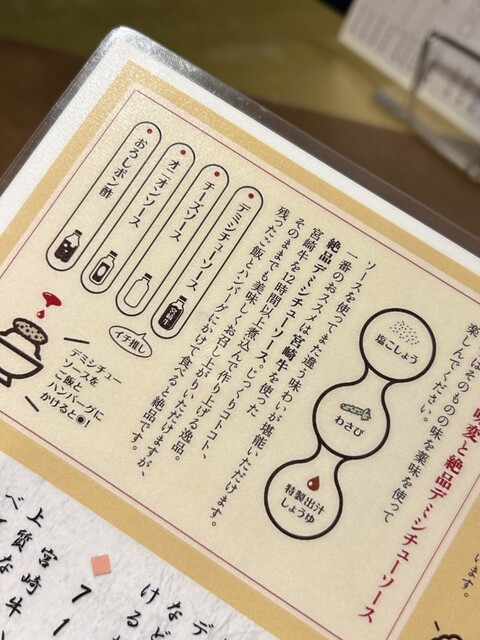 味変と絶品デミシチューソース
はそのものの味を薬味を使って
楽しんでください。
塩こしょう
わさび
特製出汁
しょうゆ
ソースを使ってまた違う味わいが堪能いただけます。
一番のおススメは宮崎牛を使った
絶品デミシチューソース。じっくりコトコト、
宮崎牛を12時間以上煮込んで作り上げる逸品。
そのままでも美味しくお召し上がりいただけますが、
残ったご飯とハンバーグにかけて食べると絶品です。
デミシチューソース
宮崎牛
チーズソース
オニオンソース
おろしポン酢
イチ推し
デミシチュー
ソースを
ご飯と
ハンバーグに
かけると◉!
います。
デ
など
ける
71
宮崎牛
上質な
べて